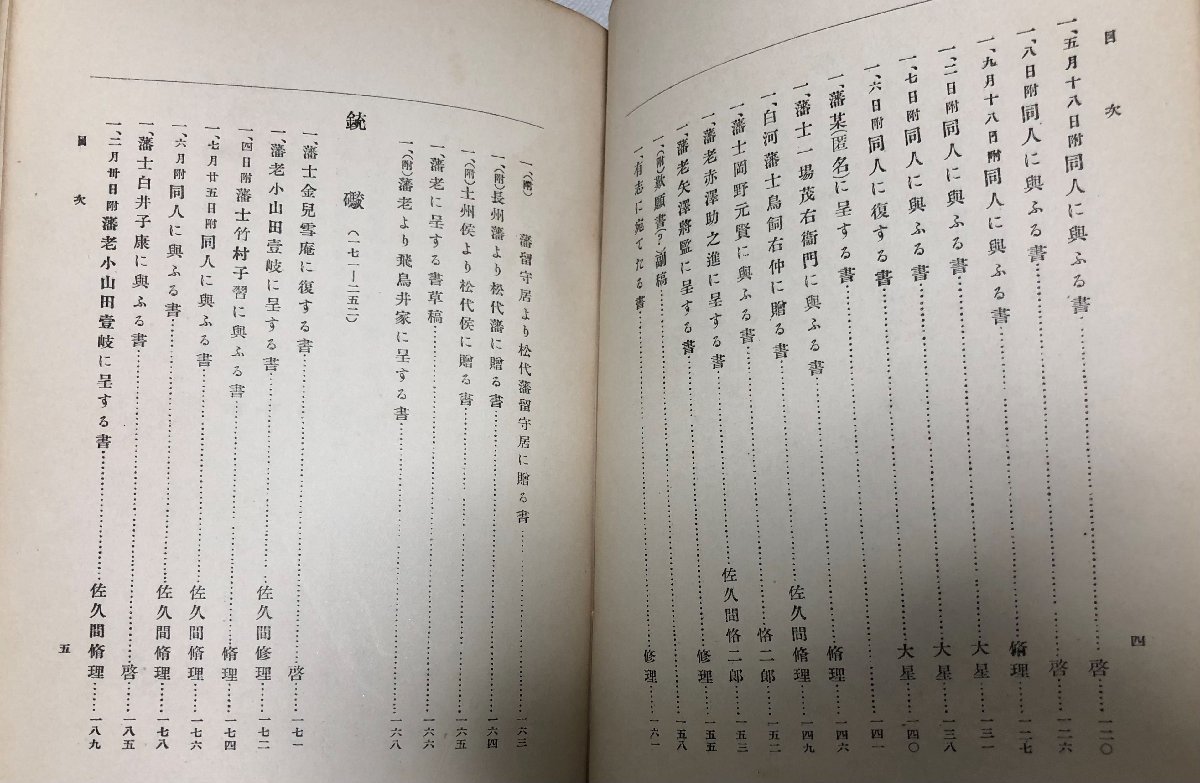 目次
四
一、五月十八日附同人に與ふる書……啓……一二〇
一、八日附同人に與ふる書……啓……一二六
一、九月十八日附同人に與ふる書……脩理……一二七
一、二日附同人に與ふる書……大星……一三一
一、七日附同人に與ふる書……大星……一三八
一、六日附同人に復する書……大星……一四〇
一、藩某(匿名)に呈する書……一四一
一、藩士一場茂右衞門に與ふる書……脩理……一四六
一、白河藩士鳥飼右仲に贈る書……佐久間脩理……一四九
一、藩士岡野元賢に與ふる書……恪二郎……一五二
一、藩老赤澤助之進に呈する書……佐久間恪二郎……一五三
一、藩老矢澤將監に呈する書……修理……一五五
一、(附)歎願書?副稿……一五八
一、有志に宛てたる書……修理……一六一
一、(附)藩留守居より松代藩留守居に贈る書……一六三
一、(附)長州藩より松代藩に贈る書……一六四
一、(附)土州侯より松代侯に贈る書……一六五
一、藩老に呈する書草稿……一六六
一、(附)藩老より飛鳥井家に呈する書……一六八
銃礮(一七一―二五二)
一、藩士金兒雪庵に復する書……啓……一七一
一、藩老小山田壹岐に呈する書……佐久間修理……一七二
一、四日附藩士竹村子習に與ふる書……脩理……一七四
一、七月廿五日附同人に與ふる書……佐久間脩理……一七六
一、六月附同人に與ふる書……佐久間脩理……一七八
一、藩士白井子康に與ふる書……啓……一八五
一、二月卅日附藩老小山田壹岐に呈する書……佐久間脩理……一八九
目次
五